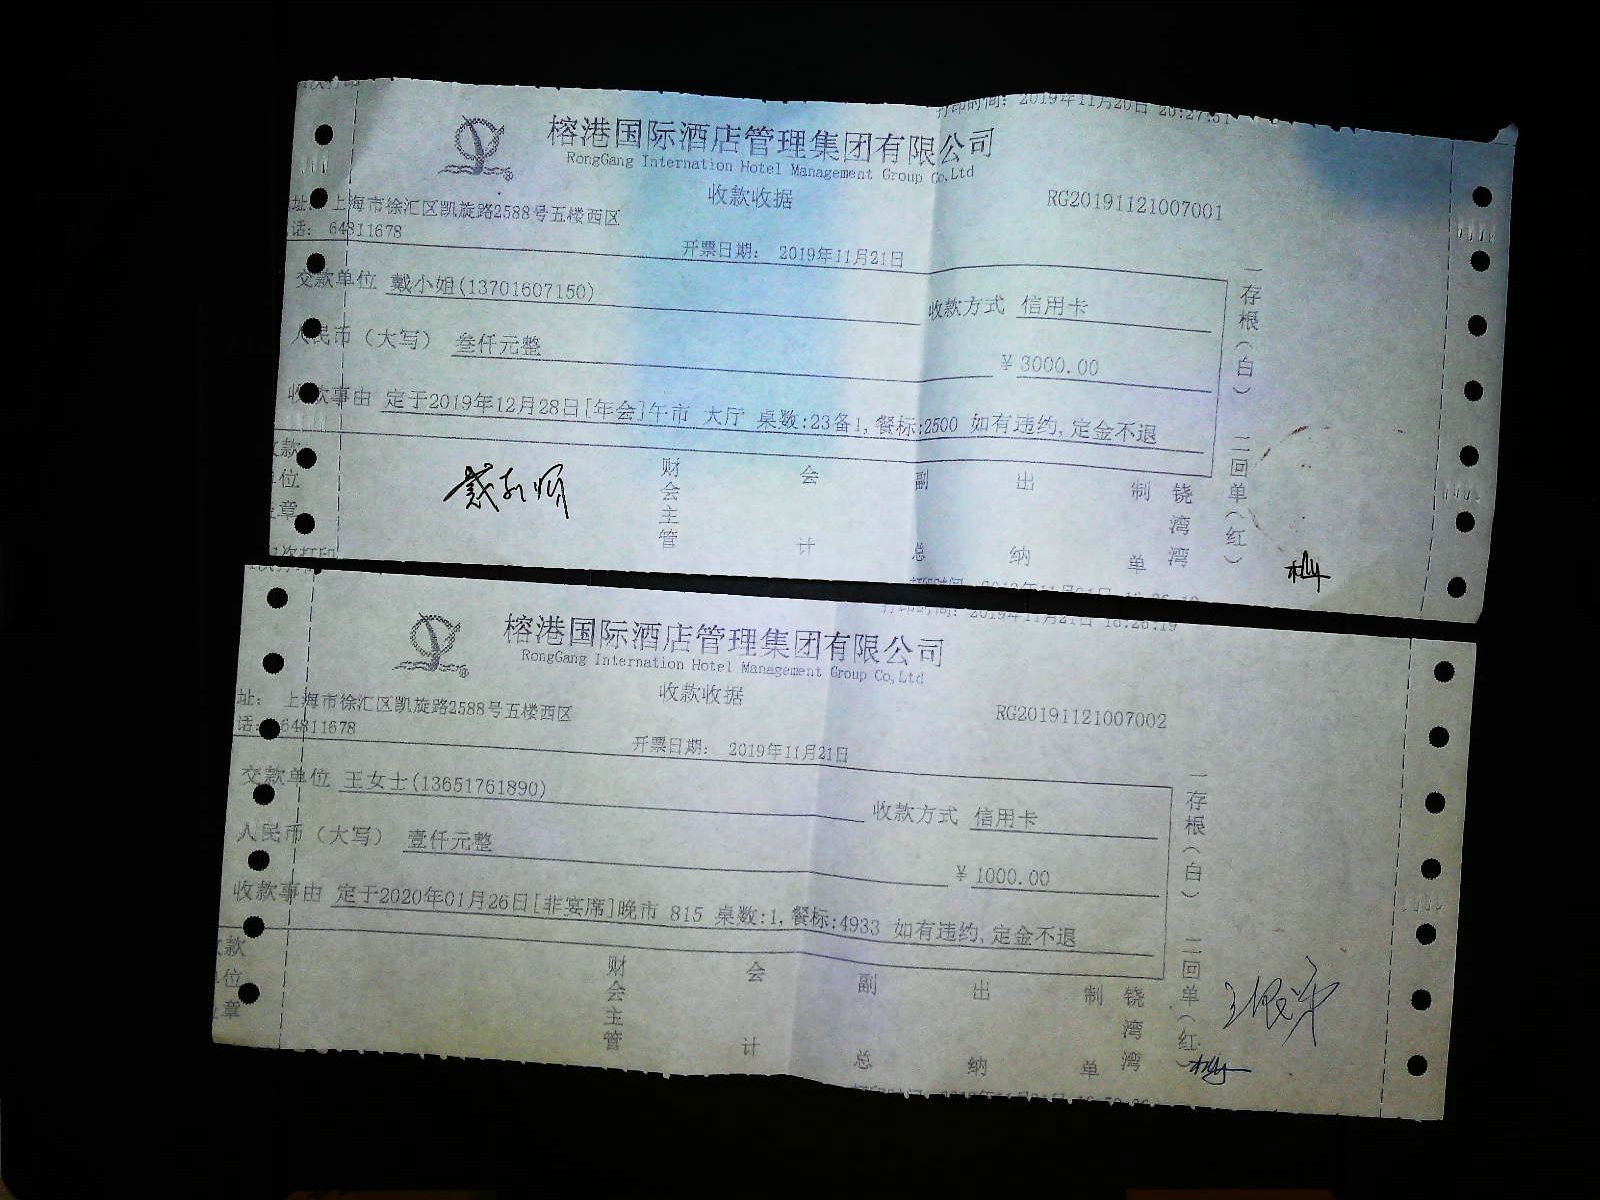 打印时间: 2019年11月20日 20:27:51
榕港国际酒店管理集团有限公司
RongGang Internation Hotel Management Group Co,Ltd
收款收据
RG20191121007001
址: 上海市徐汇区凯旋路2588号五楼西区
话: 64811678
开票日期: 2019年11月21日
交款单位 戴小姐(13701607150)
收款方式 信用卡
人民币（大写） 叁仟元整
¥ 3000.00
收款事由 定于2019年12月28日[年会]午市 大厅 桌数:23备1,餐标:2500 如有违约,定金不退
一存根(白)
二回单(红)
收款单位盖章
财会主管
会计
副总
出纳
制单
铙湾湾
打印时间: 2019年11月21日 16:26:19
榕港国际酒店管理集团有限公司
RongGang Internation Hotel Management Group Co,Ltd
收款收据
RG20191121007002
址: 上海市徐汇区凯旋路2588号五楼西区
话: 64811678
开票日期: 2019年11月21日
交款单位 王女士(13651761890)
收款方式 信用卡
人民币（大写） 壹仟元整
¥ 1000.00
收款事由 定于2020年01月26日[非宴席]晚市 815 桌数:1,餐标:4933 如有违约,定金不退
一存根(白)
二回单(红)
款
位
章
财会主管
会计
副总
出纳
制单
铙湾湾